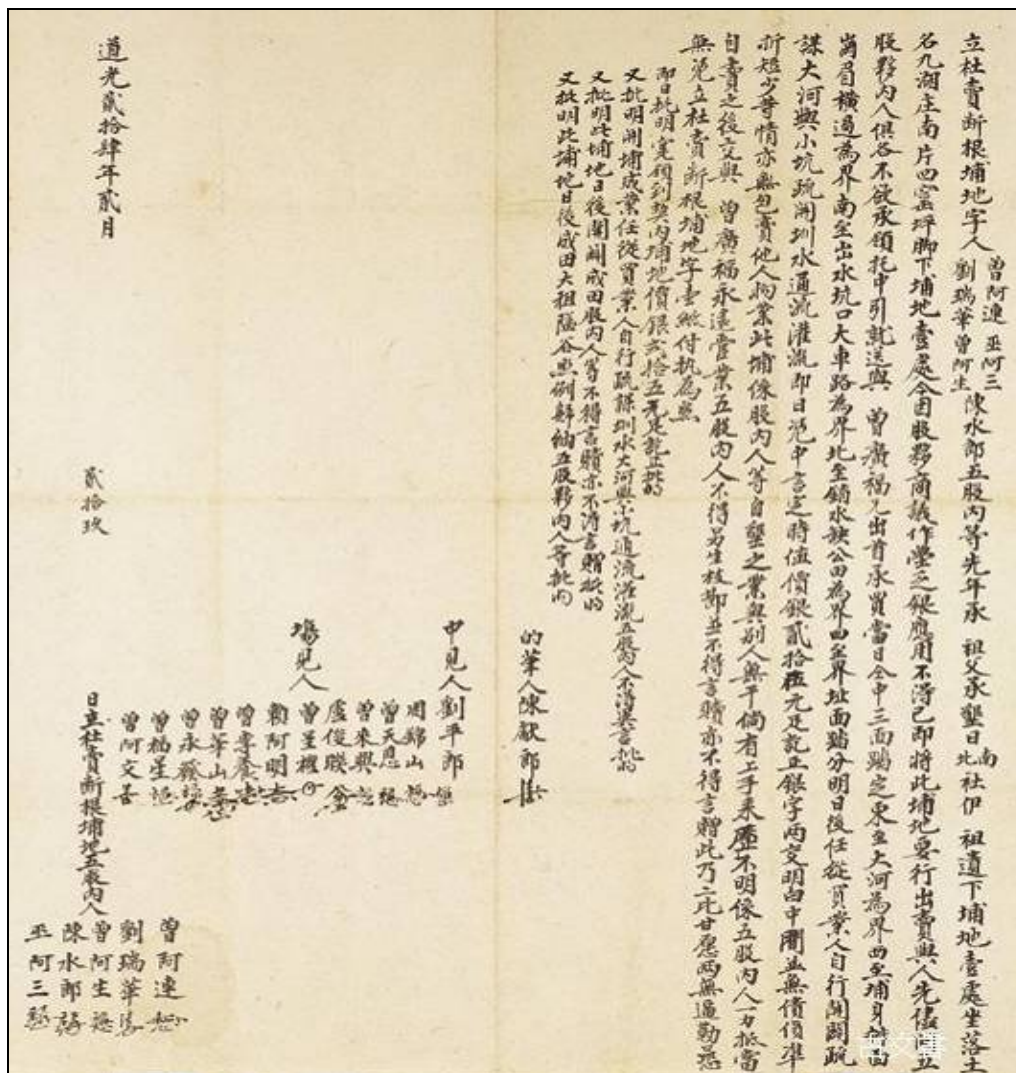 立杜賣斷根埔地字人曾阿連巫阿三劉瑞華曾阿生陳水郎五股內等先年承 祖父承墾日北南社伊 祖遺下埔地壹處坐落土
名九湖庄南片四窰坪脚下埔地壹處今因股夥商議作塋乏銀應用不淂已即將此埔地要行出賣與人先儘問五
股夥內人俱各不欲承領托中引就送與 曾廣福兄出首承買當日仝中三面踏定東至大河為界西至埔身
崗眉橫過為界南至出水坑口大車路為界北至鎖水缺公田為界四至界址面踏分明日後任從買業人自行開闢疏
謀大河與小坑疏開圳水通流灌溉即日凴中言定時值價銀貳拾伍元足訖正銀字兩交明白中間並無債價準
折短少等情亦無包賣他人物業此埔係股內人等自墾之業與別人無干倘有上手來歷不明係五股內人一力抵當
自賣之後交與 曾廣福永遠管業五股內人不得另生枝節並不得言贖亦不得言贈此乃二比甘愿兩無逼勒恐
無凴立杜賣斷根埔地字壹紙付执為炤
即日批明寔領到契內埔地價銀弍拾五元足訖正批的
又批明開埔成業任從買業人自行疏謀圳水大河與小坑通流灌溉五股內人不淂異言批的
又批明此埔地日後開闢成田股內人等不得言贖亦不淂言贈批的
又批明此埔地日後成田大租隘谷照例辦納五股夥內人等批的
的筆人陳献郎
中見人劉平郎
塲見人
周錦山
曾天恩
曾來興
盧俊賢
曾呈櫻
賴阿明
曾孝養
曾華山
曾永發
曾福星
曾阿文
道光貳拾肆年貳月 貳拾玖 日立杜賣斷根埔地五股內人
曾阿連
劉瑞華
曾阿生
陳水郎
巫阿三
古文書